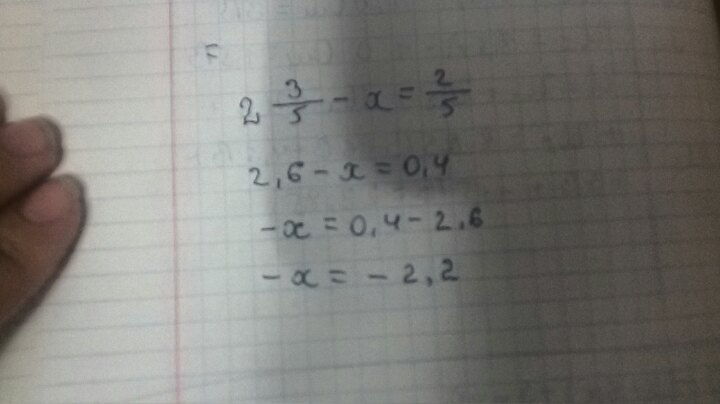 =
2 3/5 - x = 2/5
2,6 - x = 0,4
-x = 0,4 - 2,6
-x = - 2,2